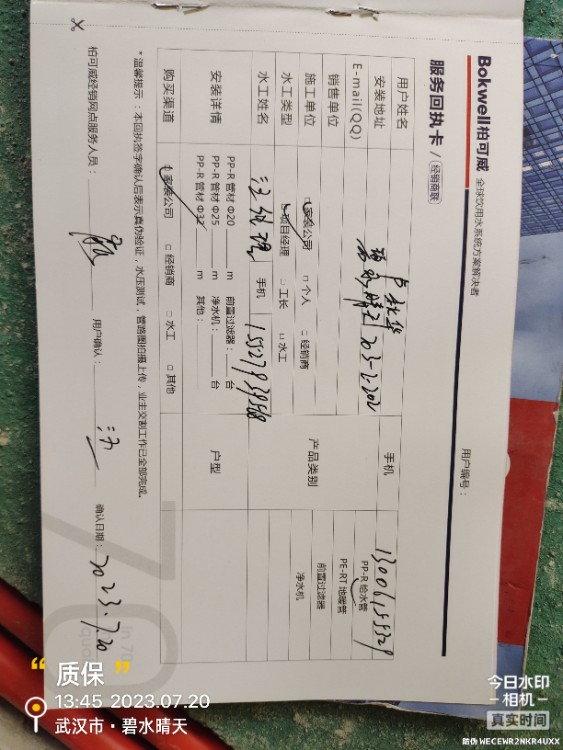 Bokwell柏可威 全球饮用水系统方案解决者
服务回执卡 / 经销商联
用户编号：
用户姓名
手机 13006155329
安装地址 碧水晴天 203-2-202
E-mail(QQ)
产品类别 PP-R 给水管
PE-RT 地暖管
前置过滤器
净水机
销售单位
施工单位 □ 家装公司 □ 个人 □ 经销商
水工类型 □ 项目经理 □ 工长 □ 水工
水工姓名 汪经理 手机 15527939568
安装详情 PP-R 管材 Φ20 m 前置过滤器： 台
PP-R 管材 Φ25 m 净水机： 台
PP-R 管材 Φ32 m 其他：
户型
购买渠道 □ 家装公司 □ 经销商 □ 水工 □ 其他
* 温馨提示：本回执签字确认后表示真伪验证，水压测试，管路图拍摄上传，业主交割工作已全部完成。
柏可威经销网点服务人员： 用户确认： 汪 确认日期： 2023.7.20
“ 质保 ”
13:45 2023.07.20
武汉市·碧水晴天
今日水印
-相机-
真实时间
防伪 WECEWR2NKR4UXX